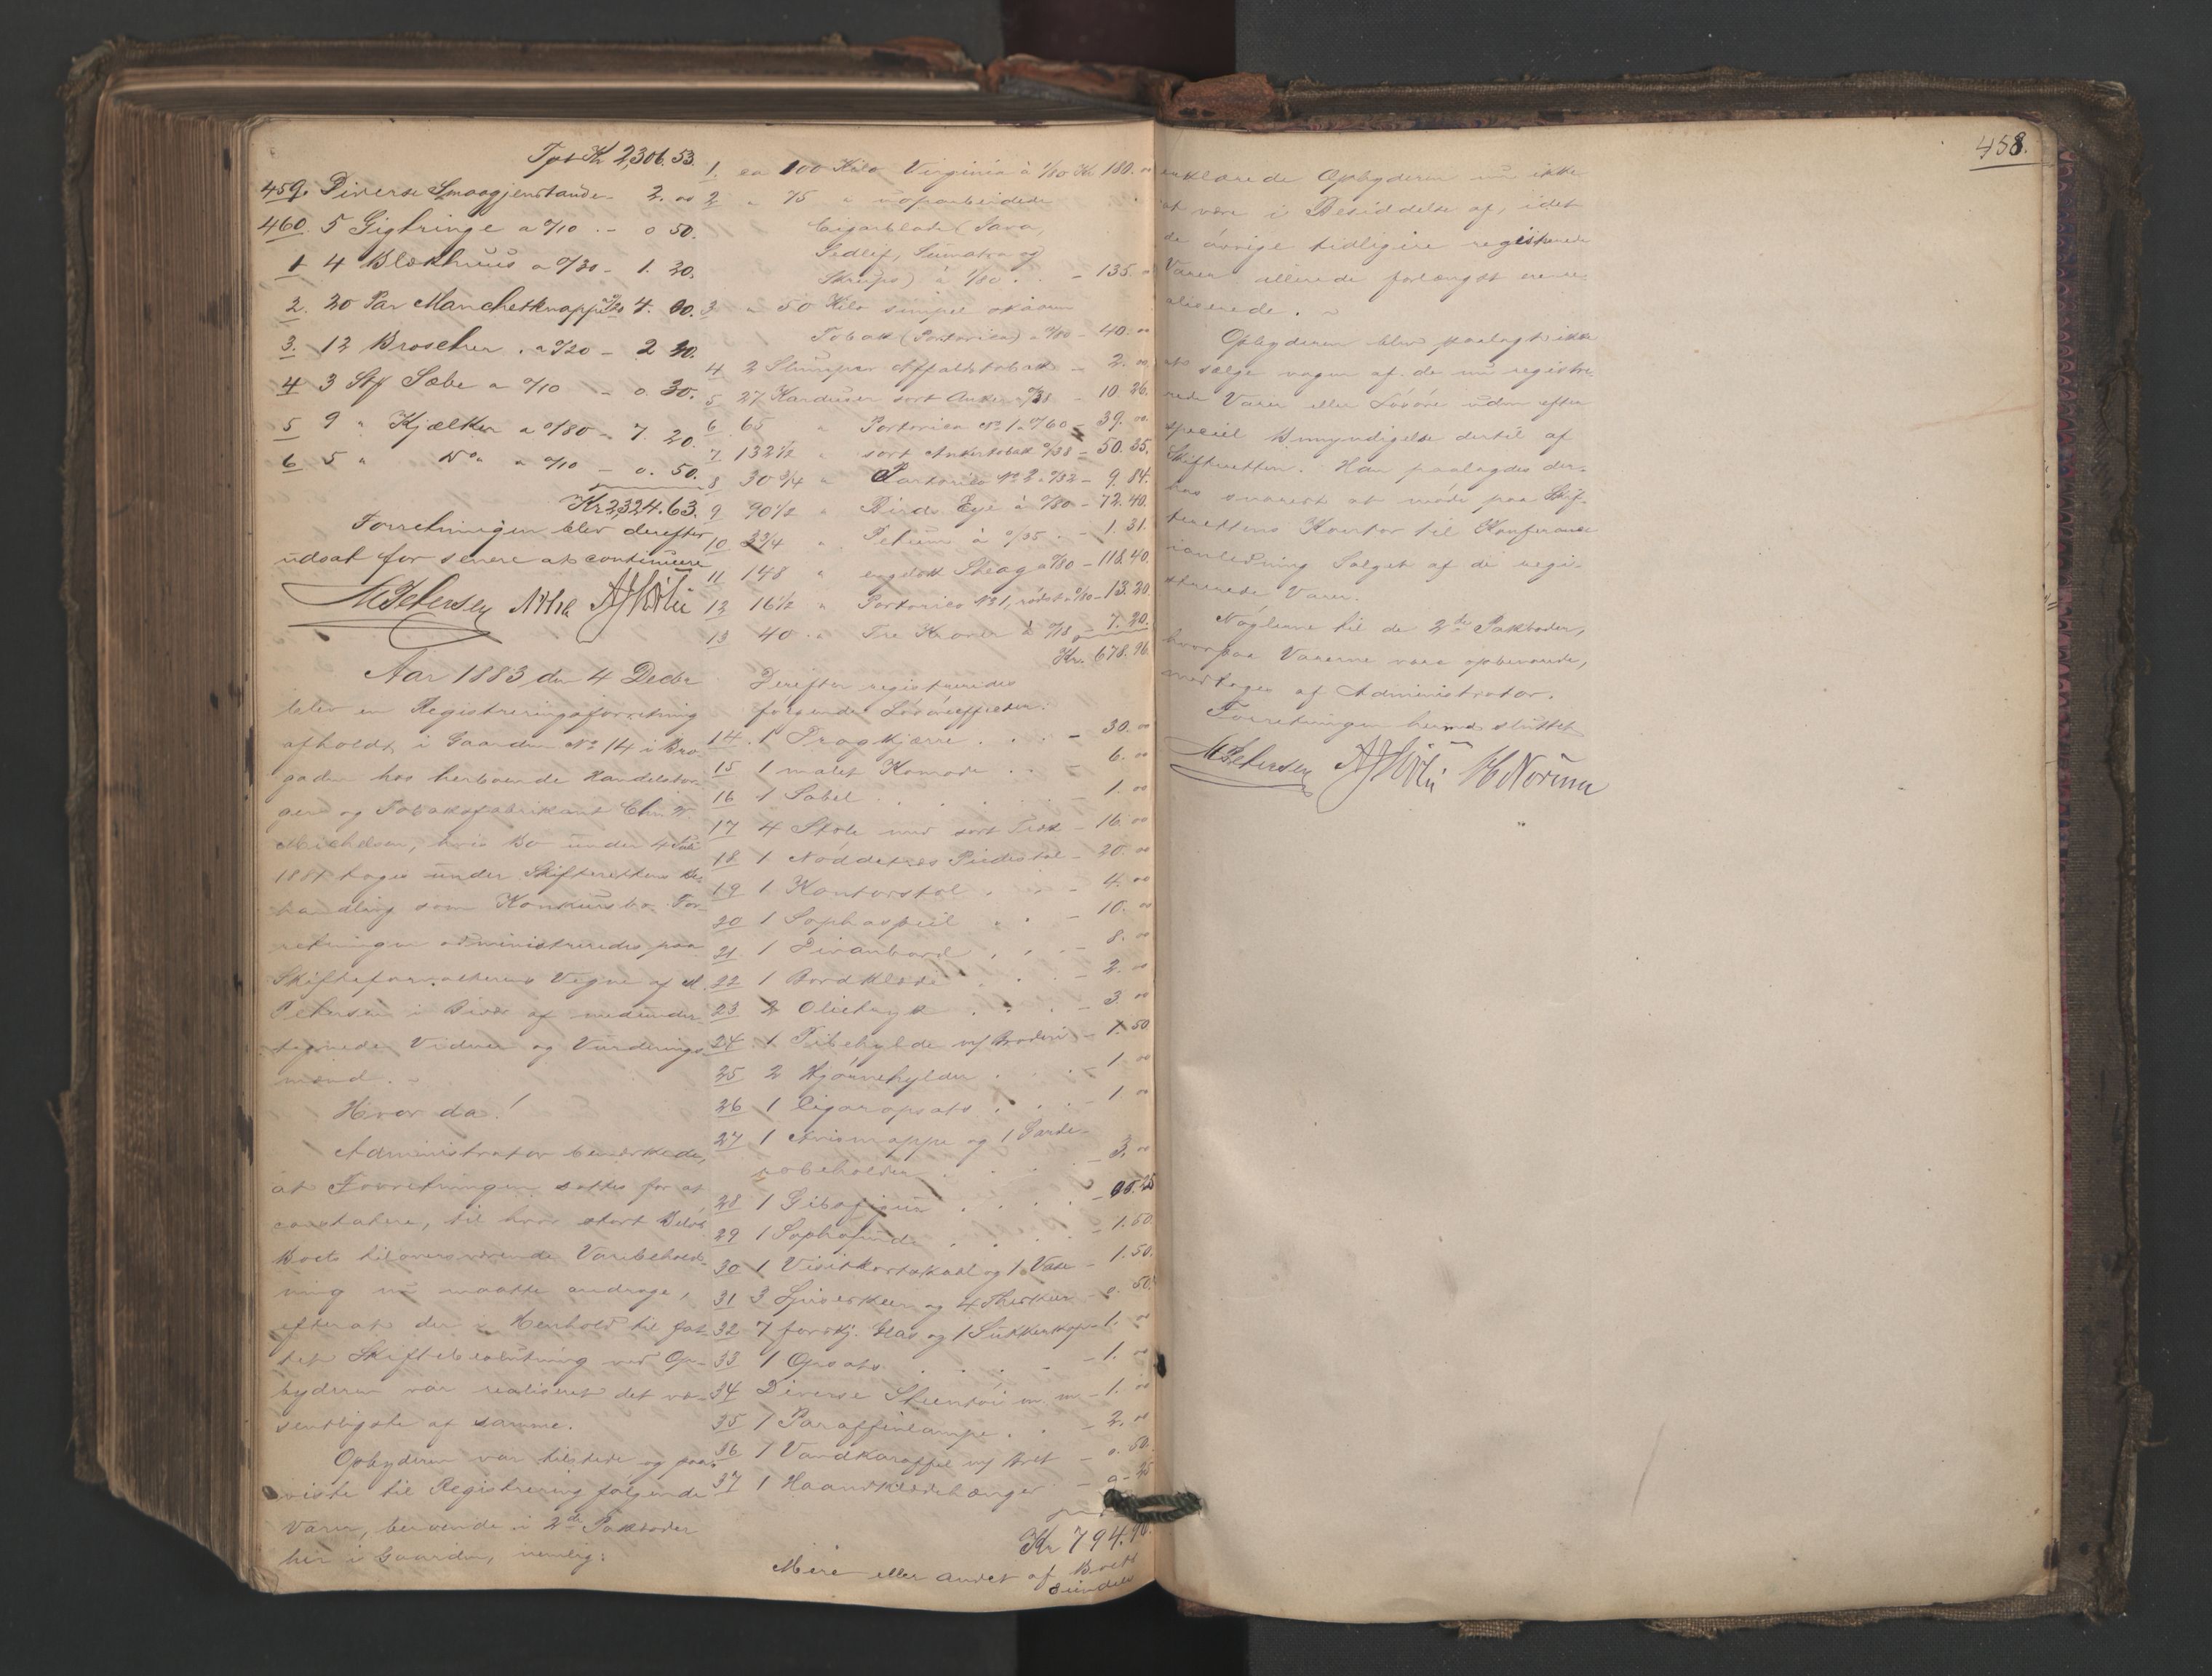 Tpt Kr 2,306.53.
459. Diverse Smaagjenstande - 2. 00
460. 5 Gigtringe a 0/10 . - 0 50.
1 4 Blækhuus a 0/30 - 1. 20.
2. 20 Par Manchetknapper 0/20 4. 00.
3. 12 Broscher . a 0/20 - 2 40.
4 3 Stk Sæbe a 0/10 - 0. 30.
5 9 " Kjælker a 0/80 - 7. 20.
6 5 " Do " a 0/10 - 0. 50.
Kr 2324.63.
Forretningen blev derefter
udsat for senere at continuere
M Petersen
Aar 1883 den 4 Decbr
blev en Registreringsforretning
afholdt i Gaarden No 14 i
gaden hos herboende Handelsbor-
ger og Tobaksfabrikant Chr.
Michelsen, hvis Bo under 4 Juli
1881 toges under Skifterettens Be-
handling som Konkursbo. For-
retningen administreredes paa
Skifteforvalterens Vegne af M.
Petersen i Overvær af medunder-
tegnede Vidner og Vurderings-
mænd. -
Hvor da!
Administrator bemærkede,
at Forretningen sattes for at
constatere, til hvor stort Beløb
Boets tiloversværende Varebehold-
ning nu maatte andrage,
efterat der i Henhold til fat-
tet Skiftebeslutning ved Op-
byderen var realiseret det væ-
sentligste af samme.
Opbyderen var tilstede og paa-
viste til Registrering følgende
Varer, beroende i 2de Pakboder
her i Gaarden, nemlig:
1. ca 100 Kilo Virginia à 1/80 Kr 180. 00
2 " 75 " uoparbeidede
Cigarblade (Java,
Sedlif, Sumatra og
Skraps) à 1/80 . . - 135. 00
3 " 50 Kilo simpel skaaren
Tobak (Portorico) a 0/80 - 40. 00
4 2 Slumper Affaldstobak - 2. 00
5 27 Karduser sort Anker a 0/38 - 10 26.
6 65 " Portorico No 1 a 0/60 - 39. 00
7 132 1/2 " sort Ankertobak 0/38 - 50. 35.
8 30 3/4 " Portorico No 2 a 0/32 - 9. 84.
9 90 1/2 " Birds Eye à 0/80 - 72. 40.
10 3 3/4 " Petum à 0/35 . - 1. 31.
11 148 " engelsk Shag a 0/80 - 118.40.
12 16 1/2 " Portorico No 1, rødst a 0/80 - 13.20.
13 40 " Tre Kroner à 0/18 - 7. 20.
Kr. 678.96
Derefter registreredes
følgende Løsøreeffecter:
14. 1 Dragkjærre . . . - 30. 00
15 1 malet Komode . . - 6. 00
16 1 Sabel . . . . . - 1. 00
17 4 Stole med sort Træk - 16. 00
18 1 Nøddetræs Piedestal - 20. 00
19 1 Kontorstol . . . - 4. 00
20 1 Sophaspeil . . - 10. 00
21 1 Divanbord . . . - 8. 00
22 1 Bordklæde . . . - 2. 00
23 2 Olietryk . . . - 3. 00
24 1 Pibehylde m/ Broderi - 1. 50
25 2 Hjørnehylder . . . - 1 00
26 1 Cigaropsats . . . - 1. 00
27 1 Avismappe og 1 Garde-
robeholder . . . . - 3. 00
28 1 Gibsfigur . . . . - 0. 25
29 1 Sophapude . . . . - 1. 50.
30 1 Visitkortskaal og 1 Vase - 1. 50.
31 3 Spiseskeer og 4 Theskeer - 0. 50.
32 7 forskj. Glas og 1 Sukkerkop - 1. 00
33 1 Opsats . . . . . - 1. 00
34 Diverse Steentøi m. m. - 1. 00
35 1 Paraffinlampe . . - 2. 00
36 1 Vandkaraffel m/ Bret - 0. 50.
37 1 Haandklædehænger . - 0 - 25
Kr 794.
Mere eller andet af Boets
458.
erklærede Opbyderen nu ikke
at være i Besiddelse af, idet
de øvrige tidligere registrerede
Varer allerede forlængst ere re-
aliserede. -
Opbyderen blev paalagt ikke
at sælge nogen af de nu registre-
rede Varer eller Løsøre uden efter
speciel Bemyndigelse dertil af
Skifteretten. Han paalagdes der-
hos snarest at møde paa Skif-
terettens Kontor til Konferance
i anledning Salget af de regi-
strerede Varer.
Nøglerne til de 2de Pakboder,
hvorpaa Varerne vare opbevarede,
modtoges af Administrator.
Forretningen hermed sluttet
M Petersen